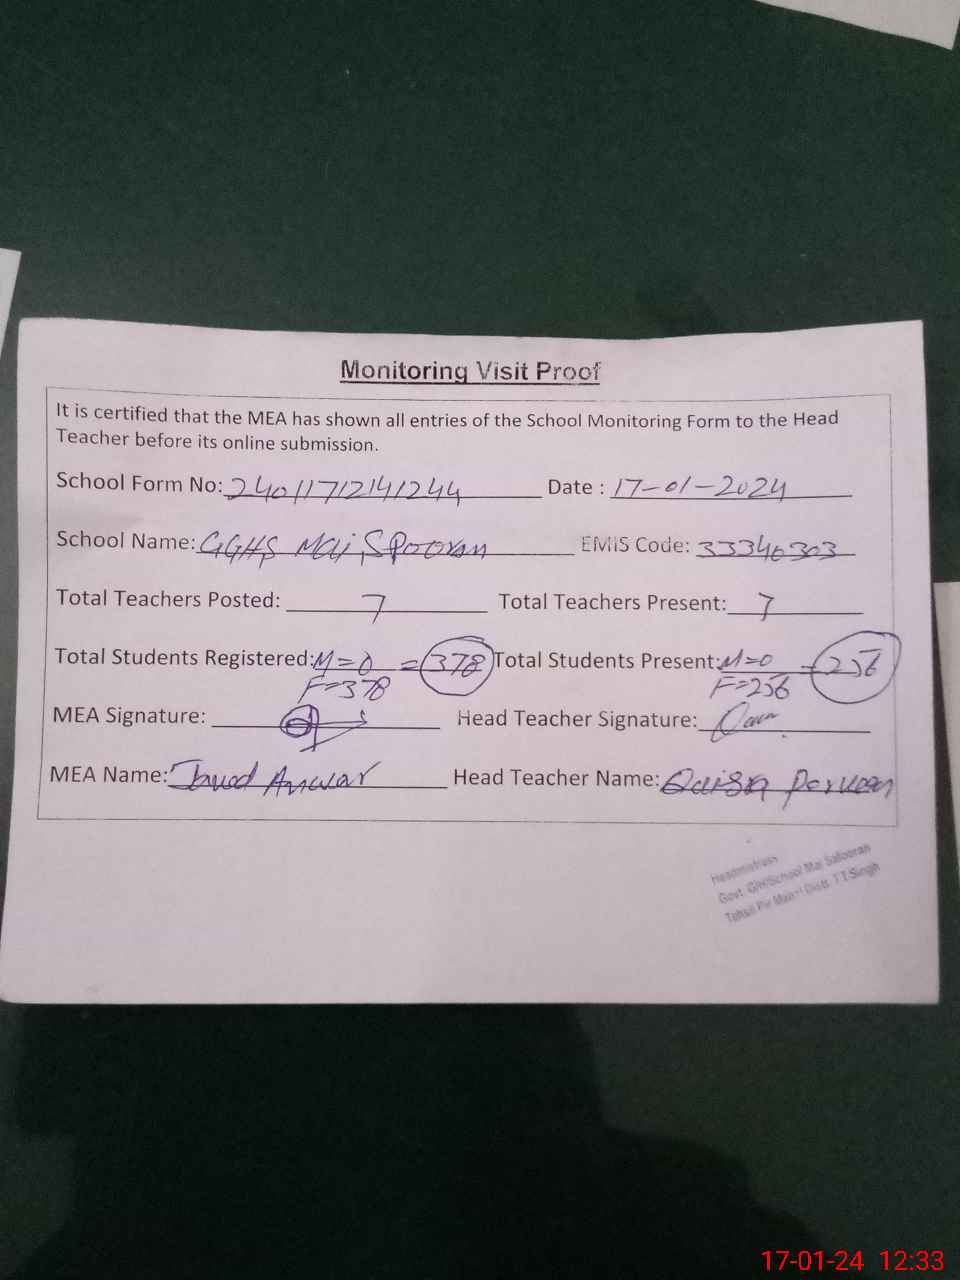 Monitoring Visit Proof
It is certified that the MEA has shown all entries of the School Monitoring Form to the Head
Teacher before its online submission.
School Form No: 24011712141244 Date : 17-01-2024
School Name: GGHS Mai Spooran EMIS Code: 33340303
Total Teachers Posted: 7 Total Teachers Present: 7
Total Students Registered: M=0 = 378 Total Students Present: M=0 = 256
F=378 F=256
MEA Signature: Head Teacher Signature:
MEA Name: Javed Anwar Head Teacher Name: Qaisra Parveen
Headmistress
Govt. G/H/School Mai Safooran
Tehsil Pir Mahal Distt. T.T.Singh
17-01-24 12:33